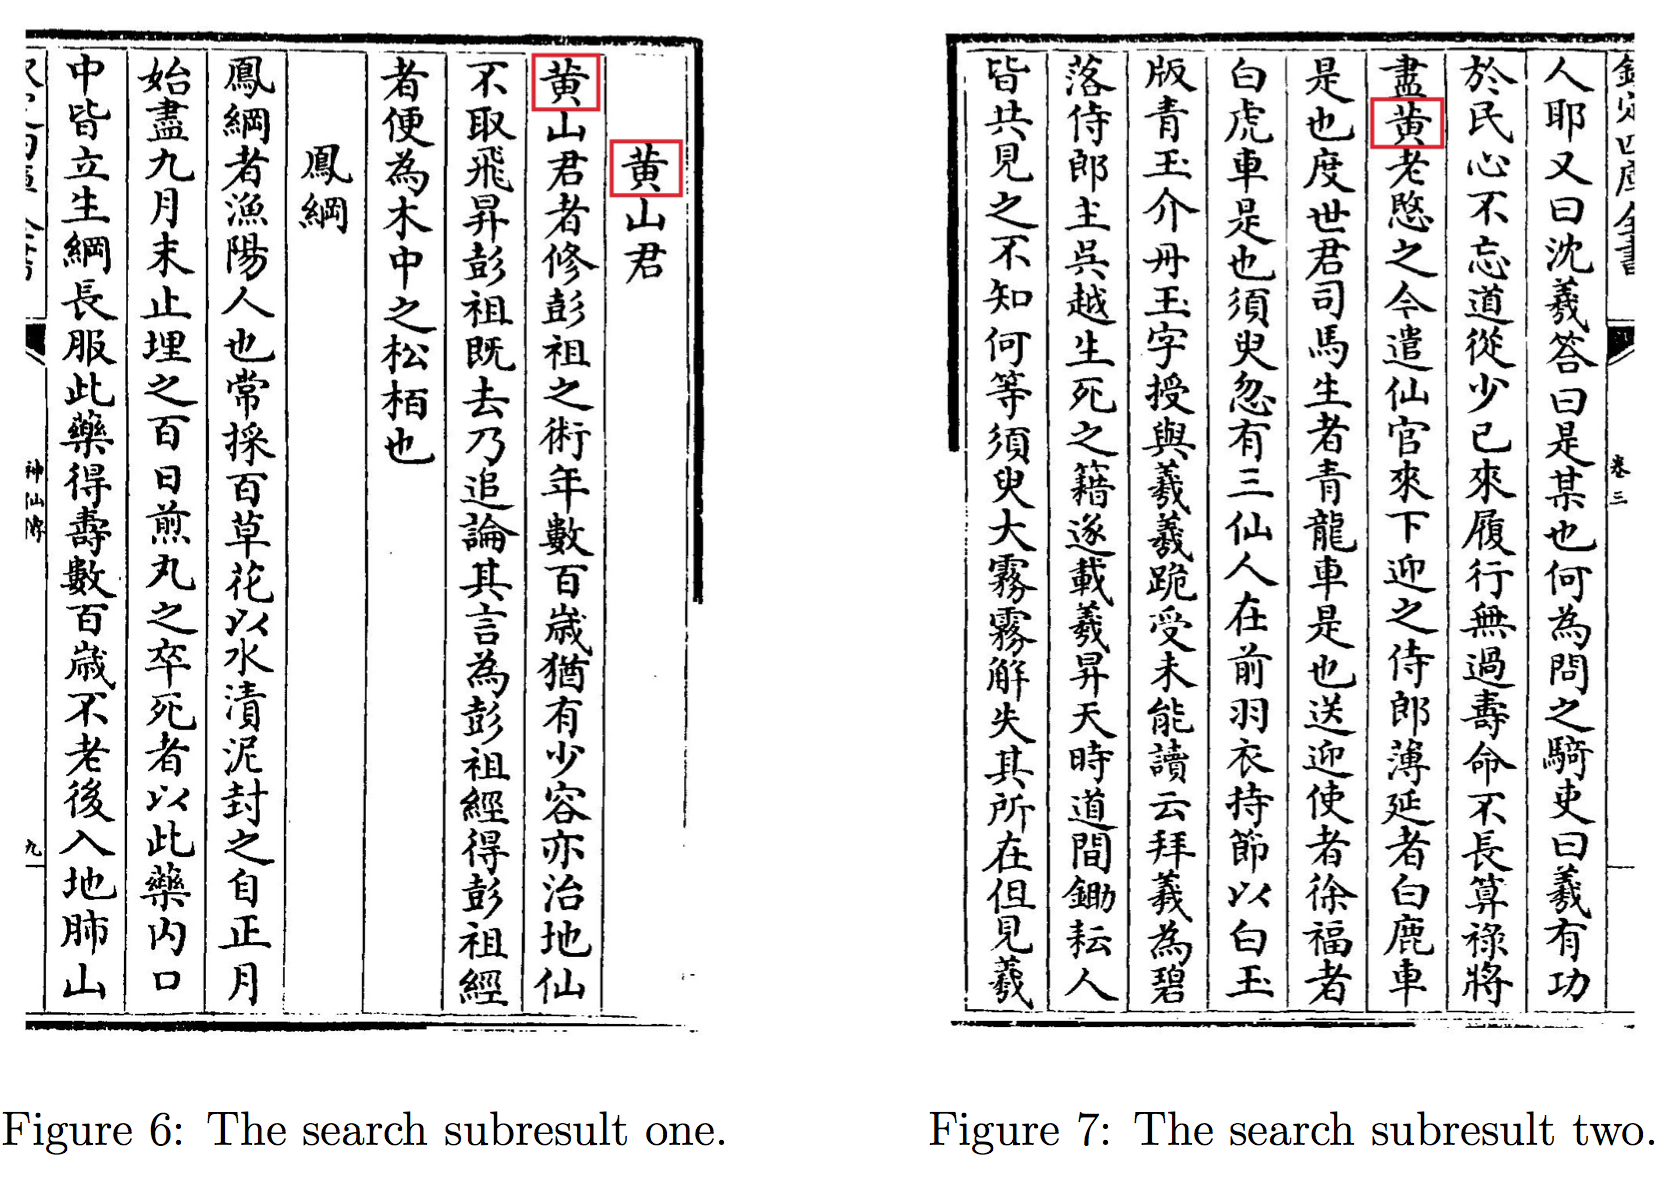 黄山君
黄山君者修彭祖之術年數百歳猶有少容亦治地仙
不取飛昇彭祖既去乃追論其言為彭祖經得彭祖經
者便為木中之松栢也
鳳綱
鳳綱者漁陽人也常採百草花以水漬泥封之自正月
始盡九月末止埋之百日煎丸之卒死者以此藥内口
中皆立生綱長服此藥得壽數百歳不老後入地肺山
神仙傳
九
Figure 6: The search subresult one.
欽定四庫全書
卷三
人耶又曰沈羲答曰是某也何為問之騎吏曰羲有功
於民心不忘道從少已來履行無過壽命不長算祿將
盡黄老愍之今遣仙官來下迎之侍郎薄延者白鹿車
是也度世君司馬生者青龍車是也送迎使者徐福者
白虎車是也須臾忽有三仙人在前羽衣持節以白玉
版青玉介丹玉字授與羲羲跪受未能讀云拜羲為碧
落侍郎主吳越生死之籍遂載羲昇天時道間鋤耘人
皆共見之不知何等須臾大霧霧解失其所在但見羲
Figure 7: The search subresult two.